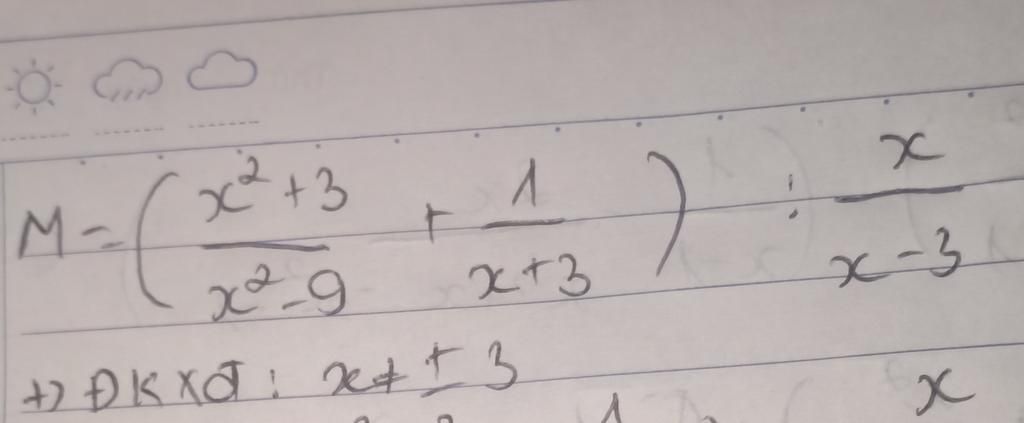 M = ( (x² + 3)/(x² - 9) + 1/(x + 3) ) : x/(x - 3)
+) ĐKXĐ : x ≠ ± 3
1 x